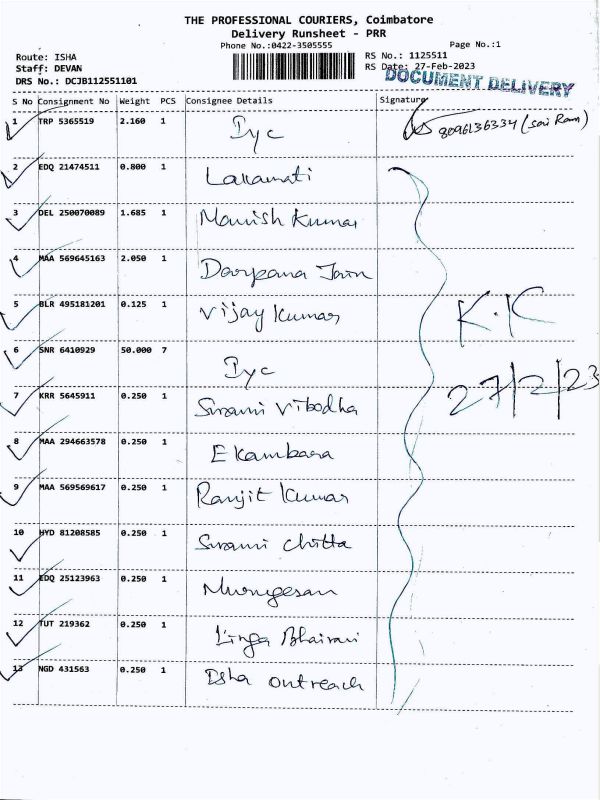 THE PROFESSIONAL COURIERS, Coimbatore
Delivery Runsheet - PRR
Phone No.:0422-3505555 Page No.:1
Route: ISHA RS No.: 1125511
Staff: DEVAN RS Date: 27-Feb-2023
DRS No.: DCJB112551101 DOCUMENT DELIVERY
S No Consignment No Weight PCS Consignee Details Signature
1 TRP 5365519 2.160 1 Iyc 8096136334 (Sai Ram)
2 EDQ 21474511 0.800 1
3 DEL 250070089 1.685 1 Manish Kumar
4 MAA 569645163 2.050 1 Darpana Jain
5 BLR 495181201 0.125 1 Vijay Kumar K.K
6 SNR 6410929 50.000 7 Iyc 27/2/23
7 KRR 5645911 0.250 1 Swami Vibodha
8 MAA 294663578 0.250 1 Ekambara
9 MAA 569569617 0.250 1 Ranjit Kumar
10 HYD 81208585 0.250 1 Swami Chitta
11 EDQ 25123963 0.250 1 Murugesan
12 TUT 219362 0.250 1 Linga Bhairavi
13 NGD 431563 0.250 1 Isha Outreach